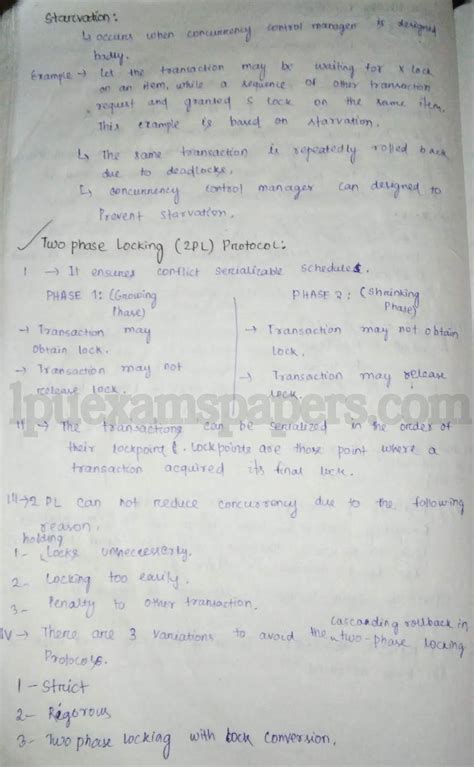 Starvation:
↳ occurs when concurrency control manager is designed
badly.
Example → Let the transaction may be waiting for X lock
on an item, while a sequence of other transaction
request and granted S lock on the same item.
This example is based on starvation.
↳ The same transaction is repeatedly rolled back
due to deadlocks.
↳ concurrency control manager can designed to
Prevent starvation.
Two phase Locking (2PL) Protocol:
I → It ensures conflict serializable schedules.
PHASE 1: (Growing
Phase)
→ Transaction may
Obtain lock.
→ Transaction may not
release lock.
PHASE 2: (Shrinking
Phase)
→ Transaction may not obtain
lock.
→ Transaction may release
lock.
lpuexamspapers.com
II → The transactions can be serialized in the order of
their lockpoint. Lockpoints are those point where a
transaction acquired its final lock.
III → 2 PL can not reduce concurrency due to the following
reason.
holding
1- Locks unnecesserly.
2- Locking too easily.
3- Penalty to other transaction.
IV → There are 3 variations to avoid the cascanding rollback in two-phase locking
Protocols.
1 - Strict
2- Rigorous
3- Two phase locking with lock conversion.